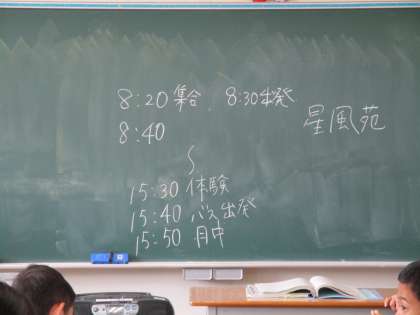 8:20 集合、8:30出発
星風苑
8:40
〜
15:30 体験
15:40 バス出発
15:50 月中